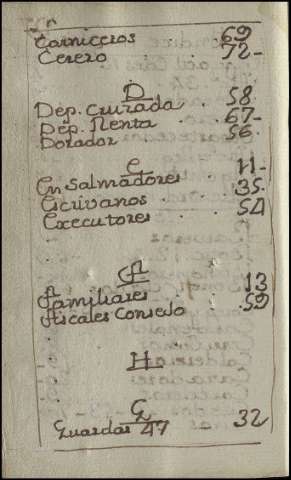 Carniceros . 69
Cerero . 72-
D
Dep. Cruzada . 58
Dep. Renta . 67-
Dorador . 56
E
En Salmadores . 11-
Escrivanos . 35
Executores . 54
F
Familiares . 13
fiscales Consejo . 59
H
G
Guardas 47 - 32